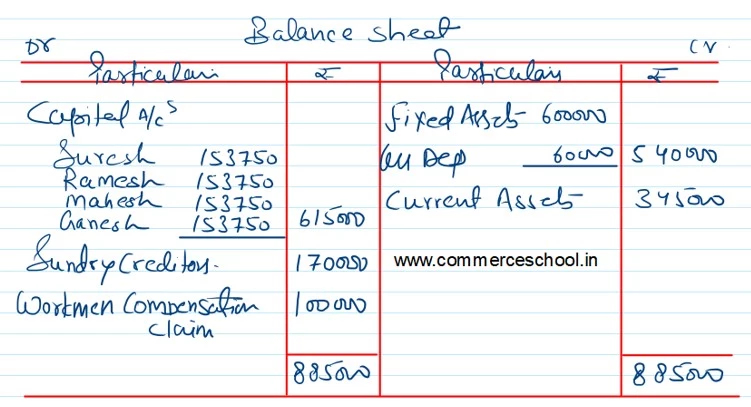 Balance sheet
Dr Cr.
Particulars ₹ Particulars ₹
Capital A/cs Fixed Assets 600000
Suresh 153750 (-) Dep 60000 540000
Ramesh 153750
Mahesh 153750 Current Assets 345000
Ganesh 153750 615000
Sundry Creditors. 170000 www.commerceschool.in
Workmen Compensation 100000
Claim
885000 885000